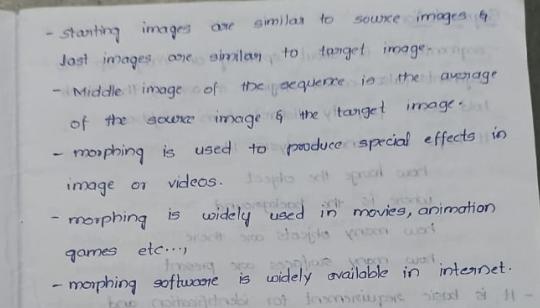 - starting images are similar to source images &
last images are similar to target image.
- Middle image of the sequence is the average
of the source image & the target image.
- morphing is used to produce special effects in
image or videos.
- morphing is widely used in movies, animation
games etc...,
- morphing software is widely available in internet.